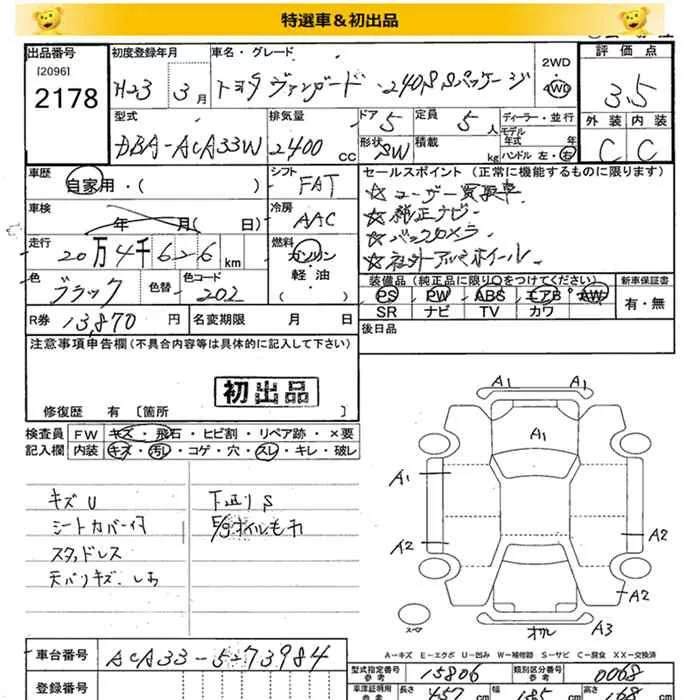 特選車＆初出品
出品番号 [2096] 2178
初度登録年月 H23 3月
車名・グレード トヨタ ヴァンガード 240S Sパッケージ
2WD 4WD
評価点 3.5
外装 内装
C C
型式 DBA-ACA33W
排気量 2400 cc
ドア 5
形状 SW
定員 5人
積載 kg
ディーラー・並行
モデル年式 年
ハンドル 左・右
車歴 自家用・( )
シフト FAT
車検 年 月( 日)
冷房 AAC
走行 20万4千626 km
燃料 ガソリン 軽・油 ( )
色 ブラック
色替
色コード 202
R券 13,870 円
名変期限 月 日
セールスポイント (正常に機能するものに限ります)
☆ユーザー買取車
☆純正ナビ
☆バックカメラ
☆社外アルミホイール
装備品 (純正品に限り○をつけてください)
PS PW ABS エアB AW
SR ナビ TV カワ
新車保証書
有・無
後日品
注意事項申告欄 (不具合内容等は具体的に記入して下さい)
初出品
修復歴 有 [箇所 ]
検査員記入欄
FW キズ・飛石・ヒビ割・リペア跡・×要
内装 キズ・汚レ・コゲ・穴・スレ・キレ・破レ
キズU
シートカバー付
スタッドレス
天バリキズ、しみ
下廻りS
E/gオイルモレ
A1 A1
A1
A1
A2 A2
A2
スペア
オカル A3
A－キズ E－エクボ U－凹み W－補修跡 S－サビ C－腐食 XX－交換済
車台番号 ACA33-5273984
登録番号
型式指定番号 参考 15806
類別区分番号 参考 0068
車庫証明用 参考 長さ 457 cm 幅 185 cm 高さ 168 cm